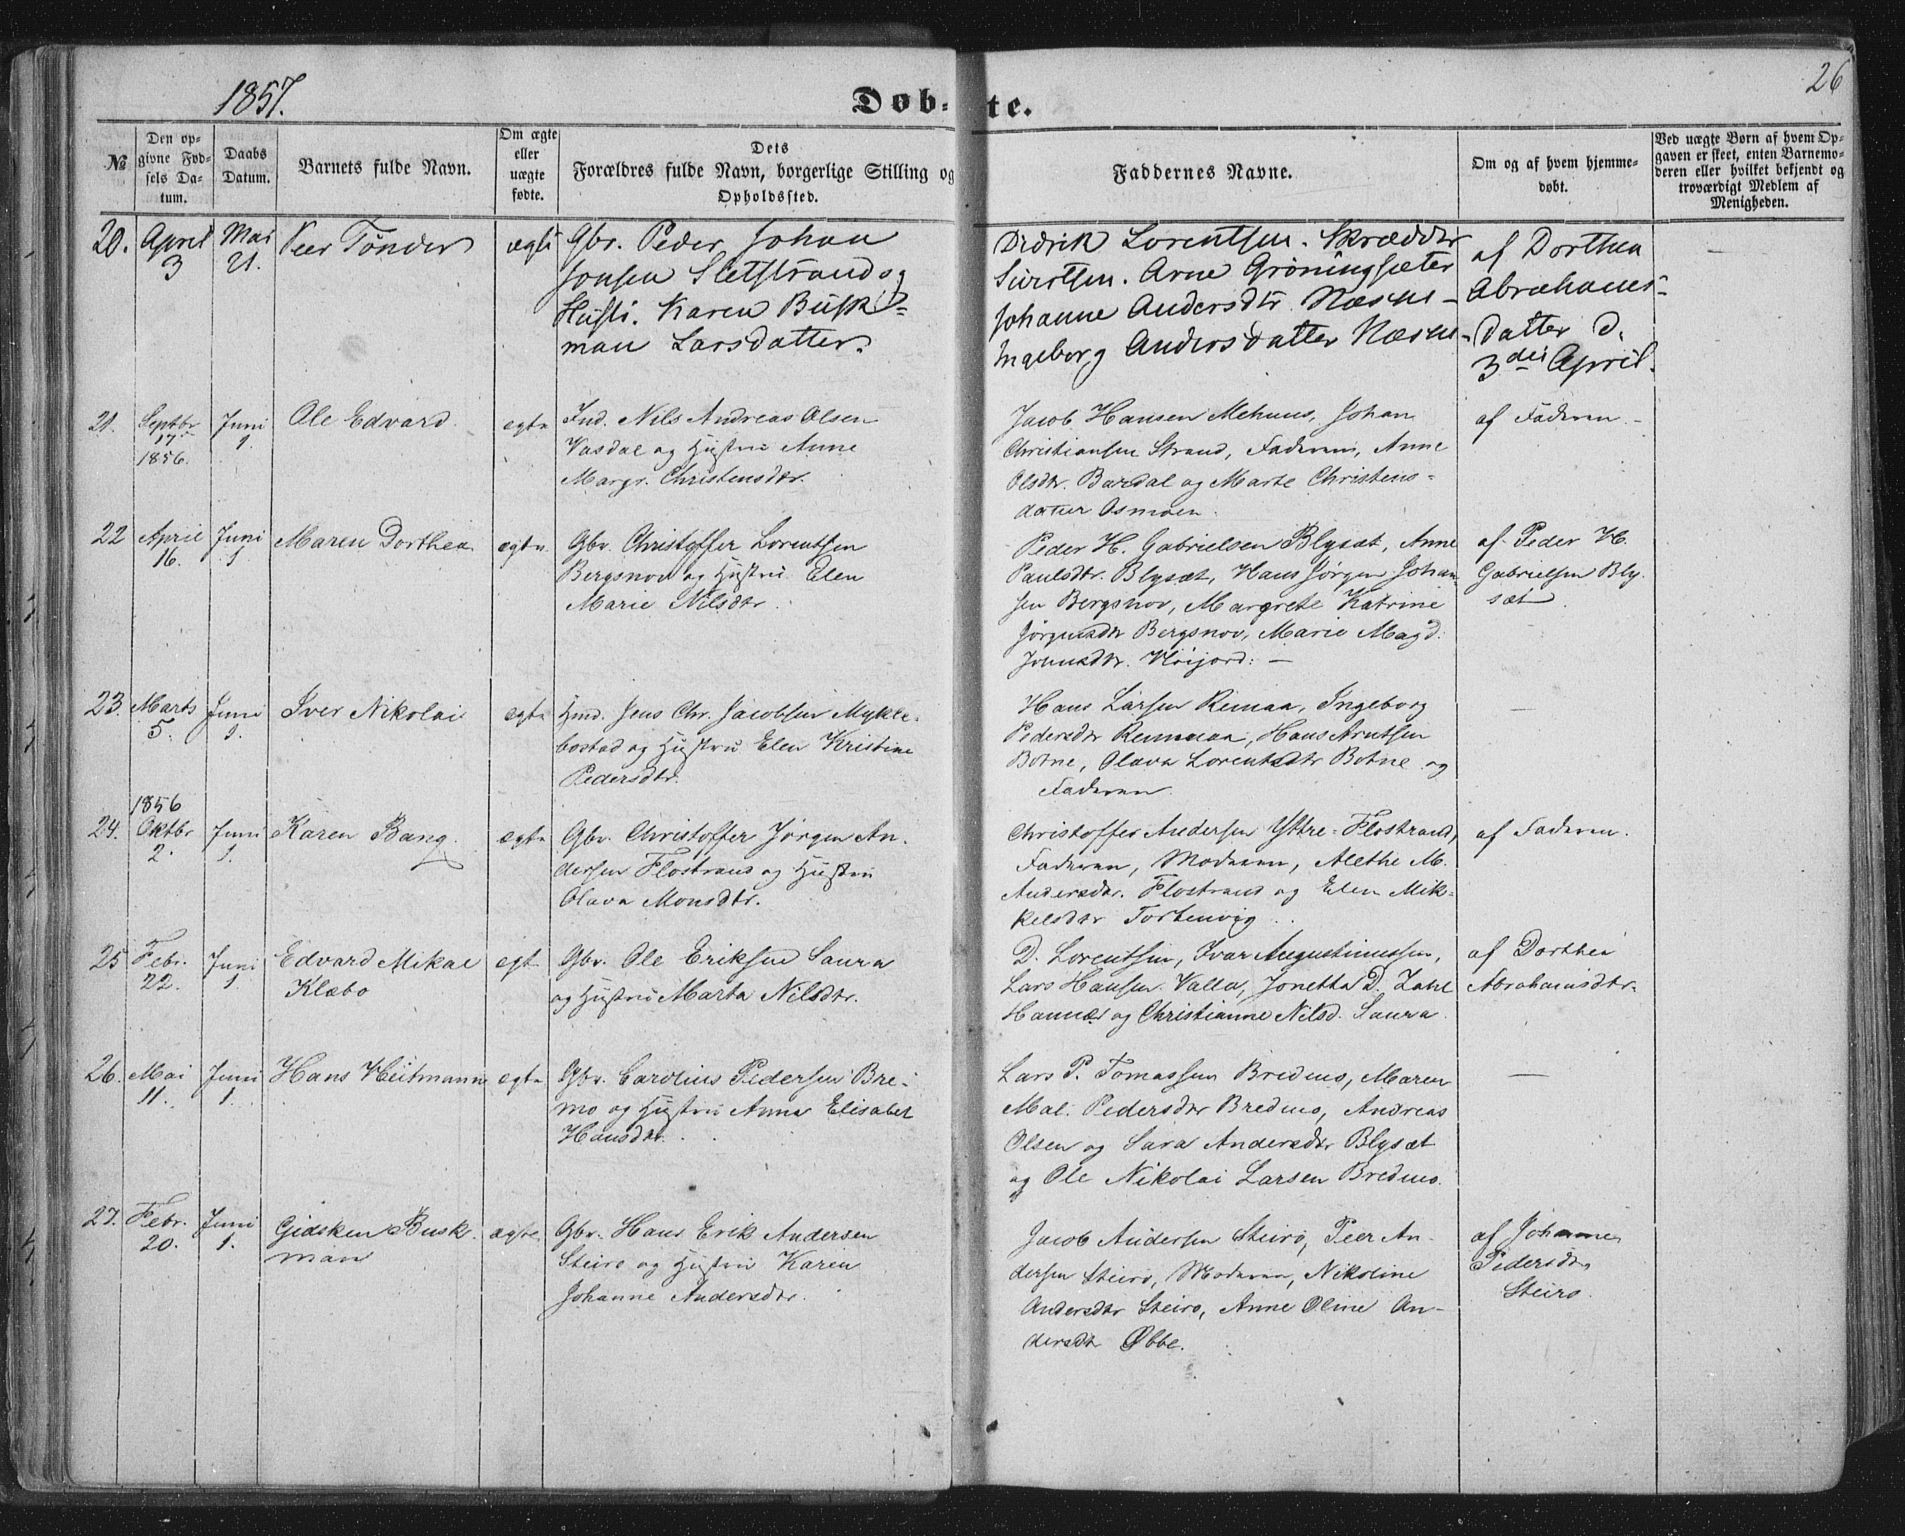 1857.
Døb-te.
26
№
Den op-
givne Fød-
sels Da-
tum.
Daabs
Datum.
Barnets fulde Navn.
Om ægte
eller
uægte
fødte.
Dets
Forældres fulde Navn, borgerlige Stilling og
Opholdssted.
Faddernes Navne.
Om og af hvem hjemme-
døbt.
Ved uægte Børn af hvem Op-
gaven er skeet, enten Barnemo-
deren eller hvilket bekjendt og
troværdigt Medlem af
Menigheden.
20.
April
3
Mai
21.
Peer Tønder
ægte
Gbr. Peder Johan
Jonsen Sletstrand og
Hustr. Karen Busk-
man Larsdatter.
Didrik Lorentsen. Skrædder
Sivertsen. Arne Grøningsæter
Johanne Andersdtr Næsne-
Ingeborg Andersdatter Næsne-
af Dorthea
Abrahams-
Datter d.
3die April.
21.
Septbr
17
1856.
Juni
1.
Ole Edvard.
egte
Ind. Nils Andreas Olsen
Vasdal og Hustru Anne
Margr. Christensdtr.
Jacob Hansen Mehuus, Johan
Christiansen Strand, Faderen, Anne
Olsdtr. Bardal og Marte Christens-
datter Osmoen.
af Faderen -
22
April
16.
Juni
1
Maren Dorthea
egte.
Gbr. Christoffer Lorentsen
Bergsnov og Hustru Elen
Marie Nilsdtr.
Peder H. Gabrielsen Blysæt, Anne
Paulsdtr. Blysæt, Hans Jørgen Johan-
sen Bergsnov, Margrete Katrine
Jørgensdtr Bergsnov, Marie Magd.
Jonasdtr. Høijord. -
af Peder H.
Gabrielsen Bly-
sæt.
23.
Marts
5.
Juni
1.
Iver Nikolai
egte
Hmd. Jens Chr. Jacobsen Mykle-
bostad og Hustru Elen Kristine
Pedersdtr.
Hans Larsen Remaa, Ingeborg
Pedersdtr Remmaa, Hans Arntsen
Botne, Olava Lorentsdtr Botne og
Faderen.
-
24.
1856
Oktbr
2.
Juni
1.
Karen Bang.
ægte
Gbr. Christoffer Jørgen An-
dersen Flostrand og Hustru
Olava Monsdtr.
Christoffer Andersen Yttre-Flostrand,
Faderen, Moderen, Alethe M.
Andersdtr. Flostrand og Elen Mik-
kelsdtr Fortenvig.
af Faderen.
25
Febr.
22.
Juni
1
Edvard Mikal
Klæbo
egt
Gbr. Ole Eriksen Saura
og Hustru Marta Nilsdtr.
D. Lorentsen, Ivar Augustinussen,
Lars Hansen Valla, Jonetta D. Zahl
Hannæs og Christianne Nilsd. Saura.
af Dorthea
Abrahamsdtr.
26.
Mai
11.
Juni
1.
Hans Heitmann
ægte
Gbr. Carolius Pedersen Bre-
mo og Hustru Anna Elisabet
Hansdtr.
Lars P. Tomassen Bredmo, Maren
Mal. Pedersdtr Bredmo, Andreas
Olsen og Sara Andersdtr Blysæt
og Ole Nikolai Larsen Bredmo.
-
27.
Febr.
20.
Juni
1.
Gidsken Busk-
man
ægte.
Gbr. Hans Erik Andersen
Steiro og Hustru Karen
Johanne Andersdtr.
Jacob Andersen Steiro, Peer An-
dersen Steiro, Moderen, Nikoline
Andersdtr Steiro, Anne Oline An-
dersdtr Øbbe.
af Johanne
Pedersdtr
Steiro.